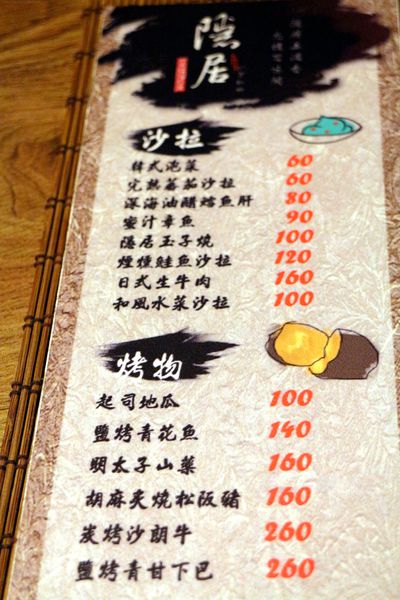 隱居
沙拉
韓式泡菜 60
完熟蕃茄沙拉 60
深海油醋鱈魚肝 80
蜜汁章魚 90
隱居玉子燒 100
煙燻鮭魚沙拉 120
日式生牛肉 160
和風水菜沙拉 100
烤物
起司地瓜 100
鹽烤青花魚 140
明太子山藥 160
胡麻炙燒松阪豬 160
炭烤沙朗牛 260
鹽烤青甘下巴 260